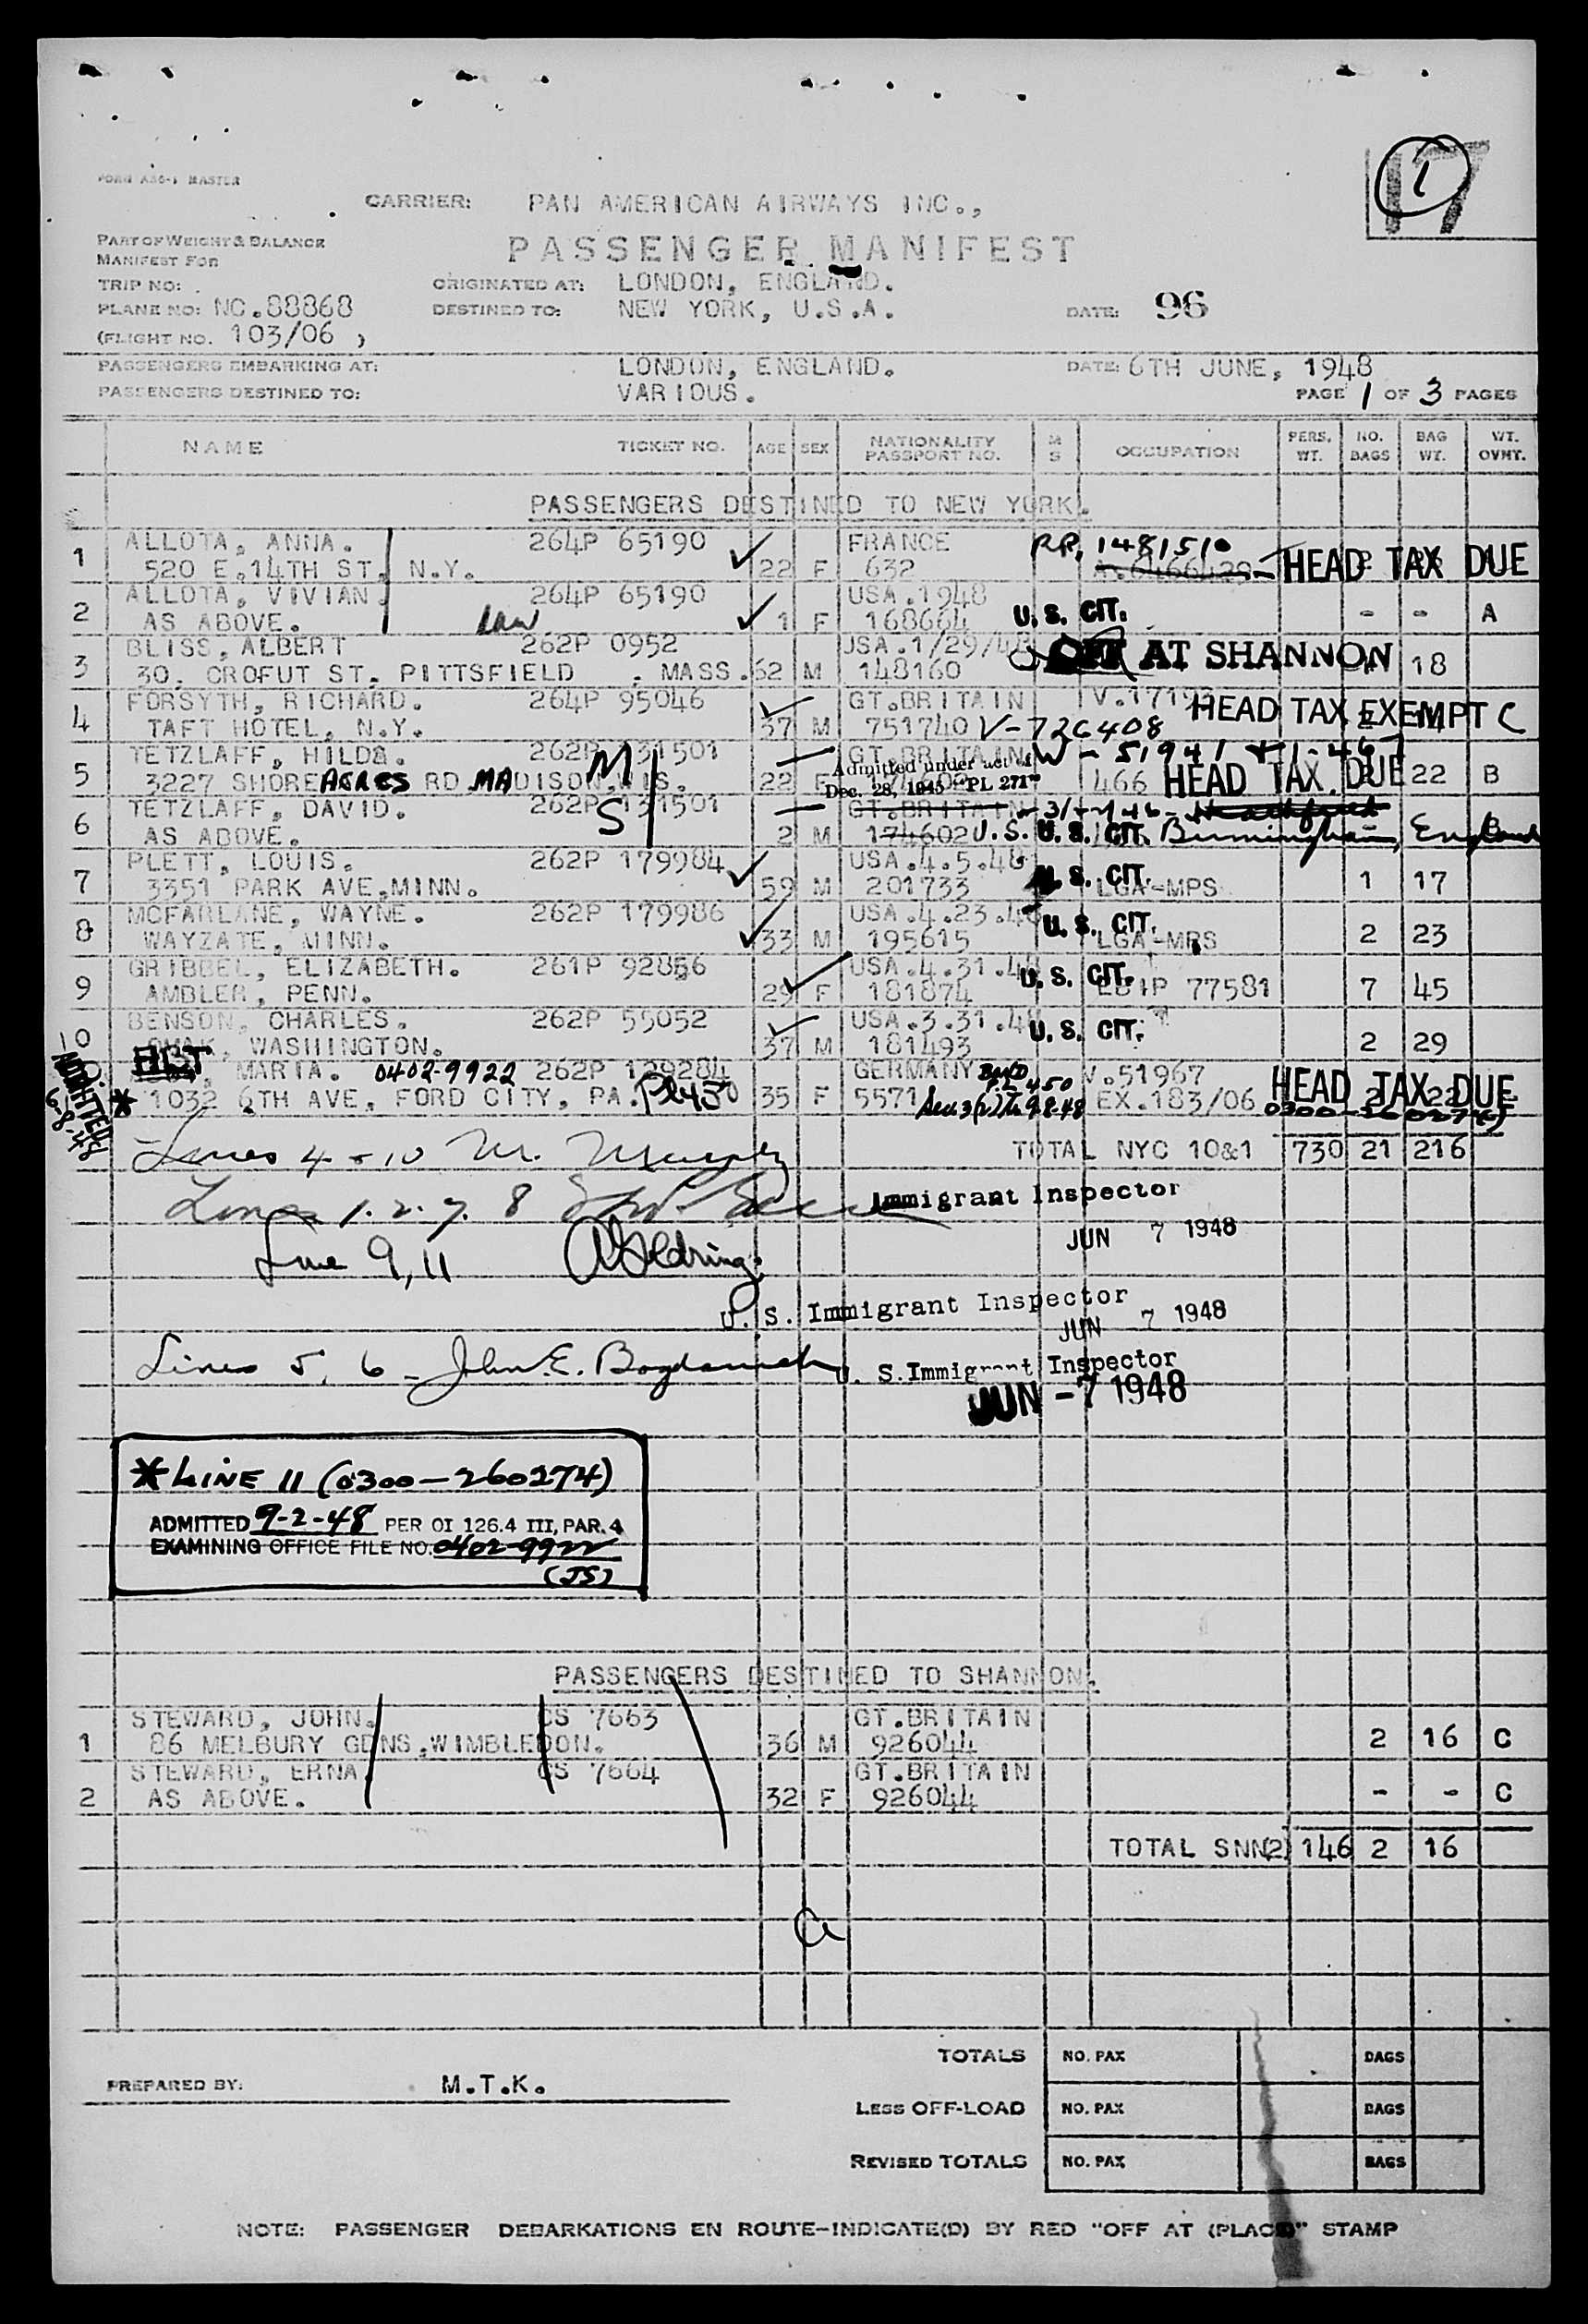 FORM A86-1 MASTER
17
1
CARRIER: PAN AMERICAN AIRWAYS INC.,
PART OF WEIGHT & BALANCE
MANIFEST FOR
PASSENGER MANIFEST
TRIP NO: ORIGINATED AT: LONDON, ENGLAND.
PLANE NO: NC.88868 DESTINED TO: NEW YORK, U.S.A. DATE: 96
(FLIGHT NO. 103/06 )
PASSENGERS EMBARKING AT: LONDON, ENGLAND. DATE: 6TH JUNE, 1948
PASSENGERS DESTINED TO: VARIOUS. PAGE 1 OF 3 PAGES
NAME TICKET NO. AGE SEX NATIONALITY PASSPORT NO. M S OCCUPATION PERS. WT. NO. BAGS BAG WT. WT. OVNT.
PASSENGERS DESTINED TO NEW YORK.
ALLOTA, ANNA. 264P 65190 FRANCE R.P. 1481510
1 520 E.14TH ST. N.Y. 22 F 632 HEAD TAX DUE
ALLOTA, VIVIAN. 264P 65190 USA.1948
2 AS ABOVE. 1 F 168664 U. S. CIT. - - A
BLISS, ALBERT 262P 0952 USA.1/29/48
3 30. CROFUT ST. PITTSFIELD . MASS. 62 M 148160 OFF AT SHANNON 18
FORSYTH, RICHARD. 264P 95046 GT.BRITAIN HEAD TAX EXEMPT C
4 TAFT HOTEL, N.Y. 37 M 751740 V-726408
TETZLAFF, HILDA. 262P 131501 M GT.BRITAIN
Admitted under act of
Dec. 28, 1945 PL 271
5 3227 SHORE ACRES RD MADISON, WIS. 22 F 466 HEAD TAX DUE 22 B
TETZLAFF, DAVID. 262P 131501 S GT.BRITAIN
6 AS ABOVE. 2 M 174602 U.S. U. S. CIT. Birmingham, England
PLETT, LOUIS. 262P 179984 USA.4.5.48
7 3351 PARK AVE,MINN. 59 M 201733 U. S. CIT. LGA-MPS 1 17
MCFARLANE, WAYNE. 262P 179986 USA.4.23.48
8 WAYZATE, MINN. 33 M 195615 U. S. CIT. LGA-MPS 2 23
GRIBBEL, ELIZABETH. 261P 92856 USA.4.31.48
9 AMBLER, PENN. 29 F 181874 U. S. CIT. 77581 7 45
BENSON, CHARLES. 262P 55052 USA.3.31.48
10 OMAK, WASHINGTON. 37 M 181493 U. S. CIT. 2 29
MARIA. 0402-9922 262P 129284 GERMANY V.51967
* 1032 6TH AVE, FORD CITY, PA. PL450 35 F 5571 EX.183/06 HEAD TAX DUE
ADMITTED
TOTAL NYC 10&1 730 21 216
Lines 4 - 10 M.
Lines 1. 2. 7. 8 Immigrant Inspector
JUN 7 1948
Line 9, 11
U. S. Immigrant Inspector
JUN 7 1948
Lines 5, 6 - John E. U. S. Immigrant Inspector
JUN - 7 1948
* LINE 11 (0300-260274)
ADMITTED 9-2-48 PER OI 126.4 III, PAR. 4
EXAMINING OFFICE FILE NO. 0402-9922
(JS)
PASSENGERS DESTINED TO SHANNON.
STEWARD, JOHN. CS 7663 GT.BRITAIN
1 86 MELBURY GDNS,WIMBLEDON. 36 M 926044 2 16 C
STEWARD, ERNA. CS 7664 GT.BRITAIN
2 AS ABOVE. 32 F 926044 - - C
TOTAL SNN(2) 146 2 16
TOTALS NO. PAX BAGS
PREPARED BY: M.T.K.
LESS OFF-LOAD NO. PAX BAGS
REVISED TOTALS NO. PAX BAGS
NOTE: PASSENGER DEBARKATIONS EN ROUTE-INDICATE(D) BY RED "OFF AT (PLACE)" STAMP